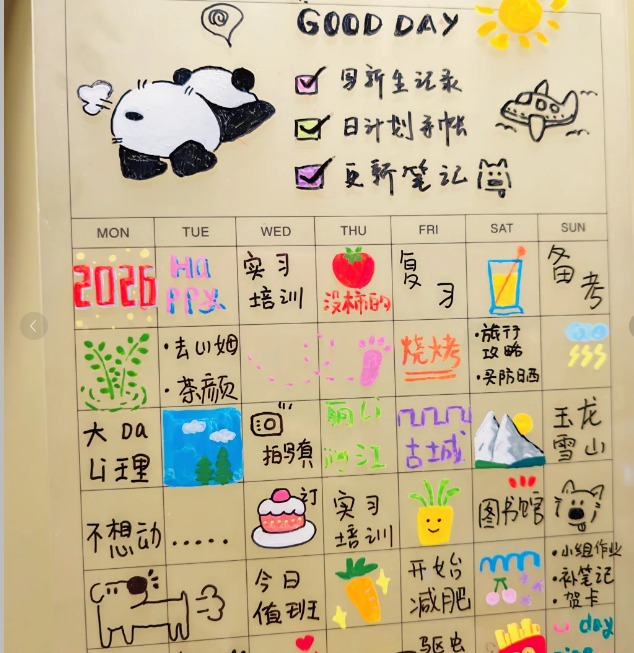 GOOD DAY
写新生记录
日计划手帐
更新笔记
MON TUE WED THU FRI SAT SUN
2026
Ha
ppy
实习
培训
没柿的
复
习
备
考
·去山姆
·茶颜
烧烤
·旅行
攻略
·买防晒
大 Da
Li 理
拍写真
丽 Li
江
古城
玉龙
雪山
不想动
......
订
实习
培训
图书馆
今日
值班
开始
减肥
·小组作业
·补笔记
·贺卡
驱虫
day